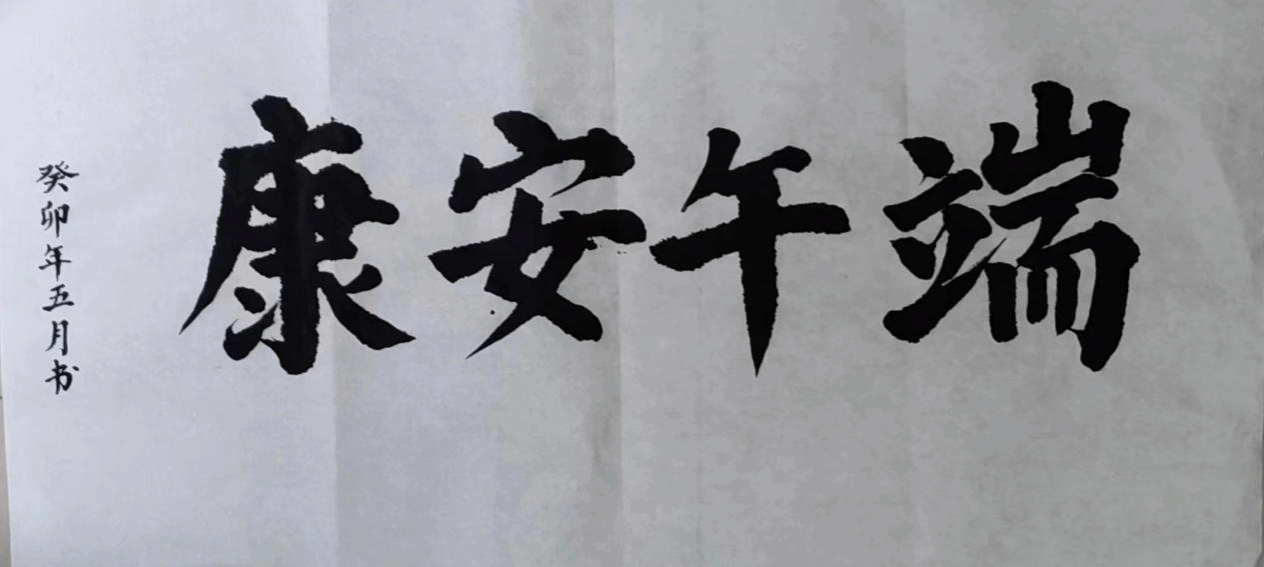 端午安康
癸卯年五月书